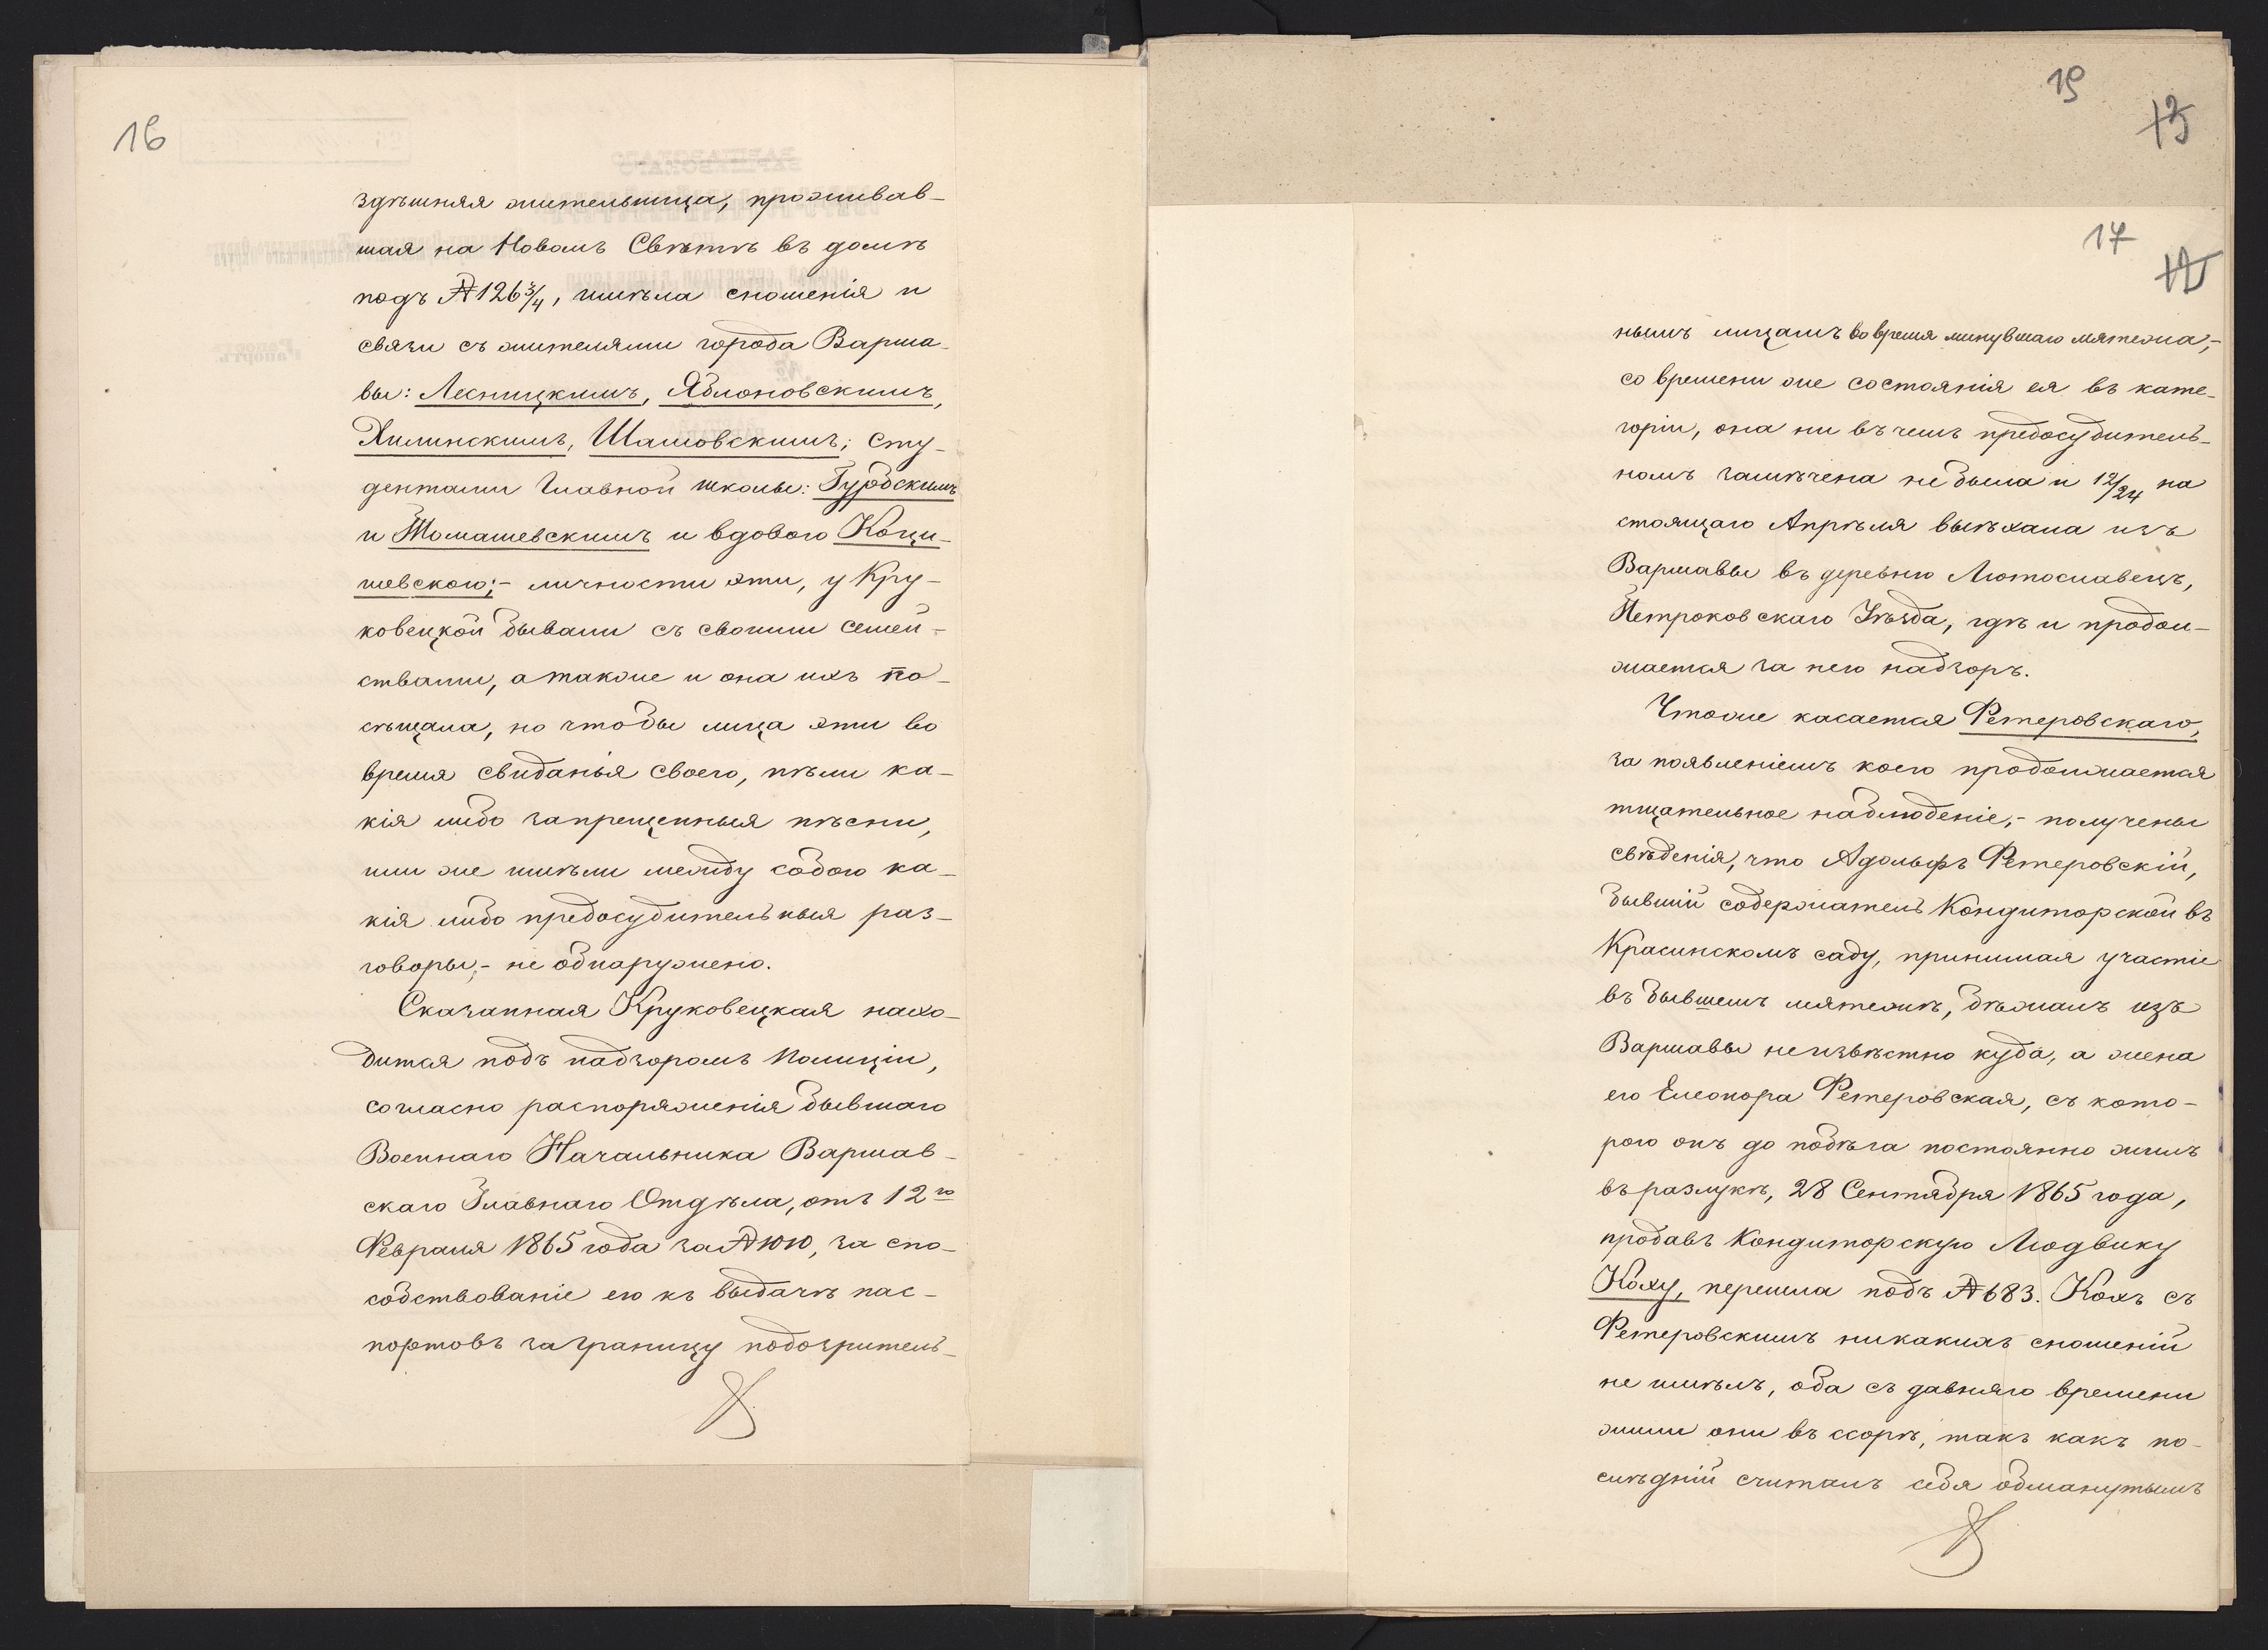 16
здѣшняя жительница, проживав-
шая на Новомъ Свѣтѣ въ домѣ
подъ № 126 3/4, имѣла сношенія и
связи съ жителями города Варша-
вы: Лесницкимъ, Яблоновскимъ,
Хилинскимъ, Шамовскимъ; сту-
дентами Главной школы: Гурбскимъ
и Томашевскимъ и вдовою Коци-
шевскою;- личности эти, у Кру-
ковецкой бывали съ своими семей-
ствами, а также и она ихъ по-
сѣщала, но чтобы лица эти во
время свиданья своего, пѣли ка-
кія либо запрещенныя пѣсни,
или же имѣли между собою ка-
кія либо предосудительныя раз-
говоры,- не обнаружено.
Сказанная Круковецкая нахо-
дится подъ надзоромъ Полиціи,
согласно распоряженія бывшаго
Военнаго Начальника Варшав-
скаго Главнаго Отдѣла, отъ 12го
Февраля 1865 года за № 1010, за спо-
собствованіе ею къ выдачѣ пас-
портовъ заграницу подозритель-
19
17
нымъ лицамъ во время минувшаго мятежа,-
со времени же состоянія ея въ кате-
горіи, она ни въ чемъ предосудитель-
номъ замѣчена не была и 12/24 на
стоящаго Апрѣля выѣхала изъ
Варшавы въ деревню Лютославецъ,
Петроковскаго Уѣзда, гдѣ и продол-
жается за нею надзоръ.
Чтоже касается Ретеровскаго,
за появленіемъ коего продолжается
тщательное наблюденіе,- получены
свѣденія, что Адольфъ Ретеровскій,
бывшій содержатель Кондиторской въ
Красинскомъ саду, принимая участіе
въ бывшемъ мятежѣ, бѣжалъ изъ
Варшавы неизвѣстно куда, а жена
его Елеонора Ретеровская, съ кото-
рою онъ до побѣга постоянно жилъ
въ разлукѣ, 28 Сентября 1865 года,
продавъ Кондиторскую Людвику
Коху, перешла подъ № 683. Кохъ съ
Ретеровскимъ никакихъ сношеній
не имѣлъ, оба съ давняго времени
жили они въ ссорѣ, такъ какъ по-
слѣдній считалъ себя обманутымъ